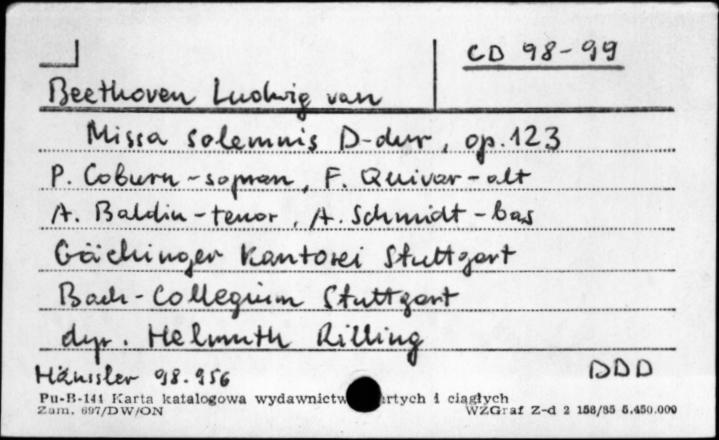 CD 98-99
Beethoven Ludwig van
Missa solemnis D-dur, op. 123
P. Coburn - sopran, F. Quivar - alt
A. Baldin - tenor, A. Schmidt - bas
Gächinger Kantorei Stuttgart
Bach-Collegium Stuttgart
dyr. Helmuth Rilling
Hänssler 98.956 DDD
Pu-B-141 Karta katalogowa wydawnictw rtych i ciągłych
Zam. 697/DW/ON WZGraf Z-d 2 158/85 5.450.000